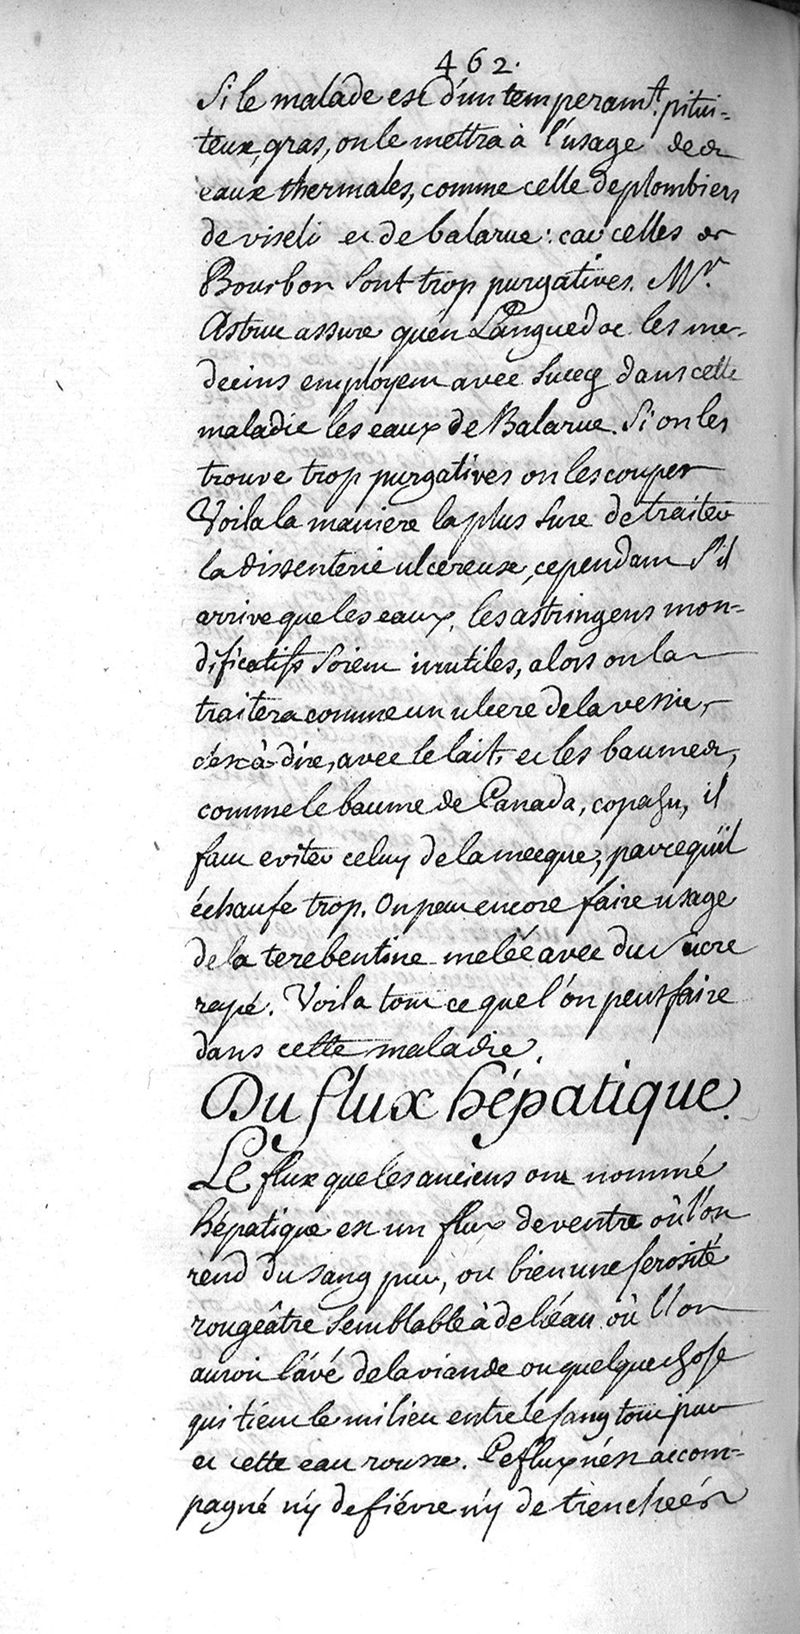 462.
Si le malade est d'un temperamt. pitui-
teux, gras, on le mettra à l'usage des
eaux thermales, comme celle de plombiers
de viseli et de balarue : car celles de
Bourbon sont trop purgatives. Mr.
Astruc assure qu'en Languedoc les me-
decins employent avec succès dans cette
maladie les eaux de Balarue. Si on les
trouve trop purgatives on les couper
Voila la maniere la plus sure de traiter
la dissenterie ulcereuse, cependant s'il
arrive que les eaux, les astringens mon-
dificatifs soient inutiles, alors on la
traitera comme un ulcere de la vessie,
c'est à dire, avec le lait, et les baumes,
comme le baume de Canada, copahu, il
faut eviter celuy de la mecque, parcequ'il
échaufe trop. On peut encore faire usage
de la terebentine melée avec du sucre
rapé. Voila tout ce que l'on peut faire
dans cette maladie.
Du flux hépatique.
Le flux que les anciens ont nommé
hépatique est un flux de ventre où l'on
rend du sang pur, ou bien une serosité
rougeâtre semblable à de l'eau où l'on
auroit lavé de la viande ou quelque chose
qui tient le milieu entre le sang tout pur
et cette eau rousse. Ce flux n'est accom-
pagné n'y de fiévre n'y de trenchées